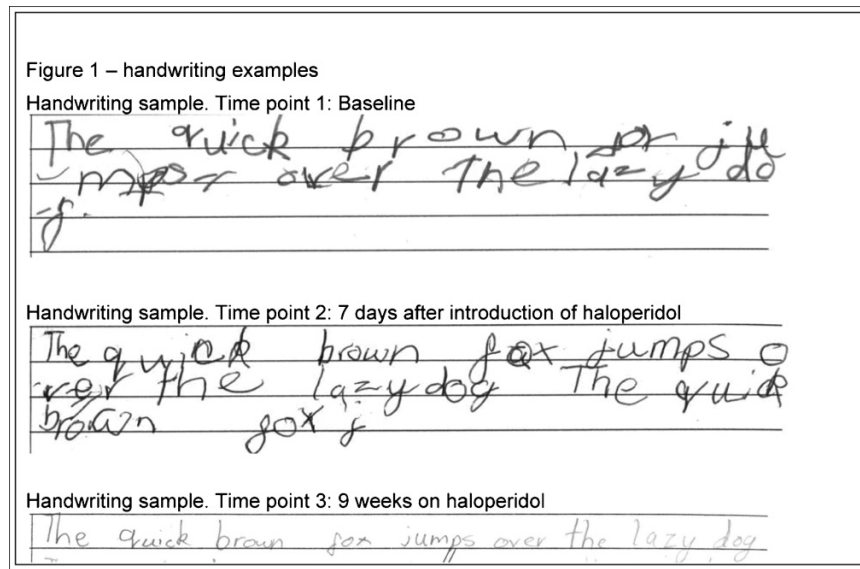 Figure 1 – handwriting examples
Handwriting sample. Time point 1: Baseline
The quick brown fox ju
-mps over the lazy do
-g.
Handwriting sample. Time point 2: 7 days after introduction of haloperidol
The quick brown fox jumps o
ver the lazy dog The quick
brown fox j
Handwriting sample. Time point 3: 9 weeks on haloperidol
The quick brown fox jumps over the lazy dog